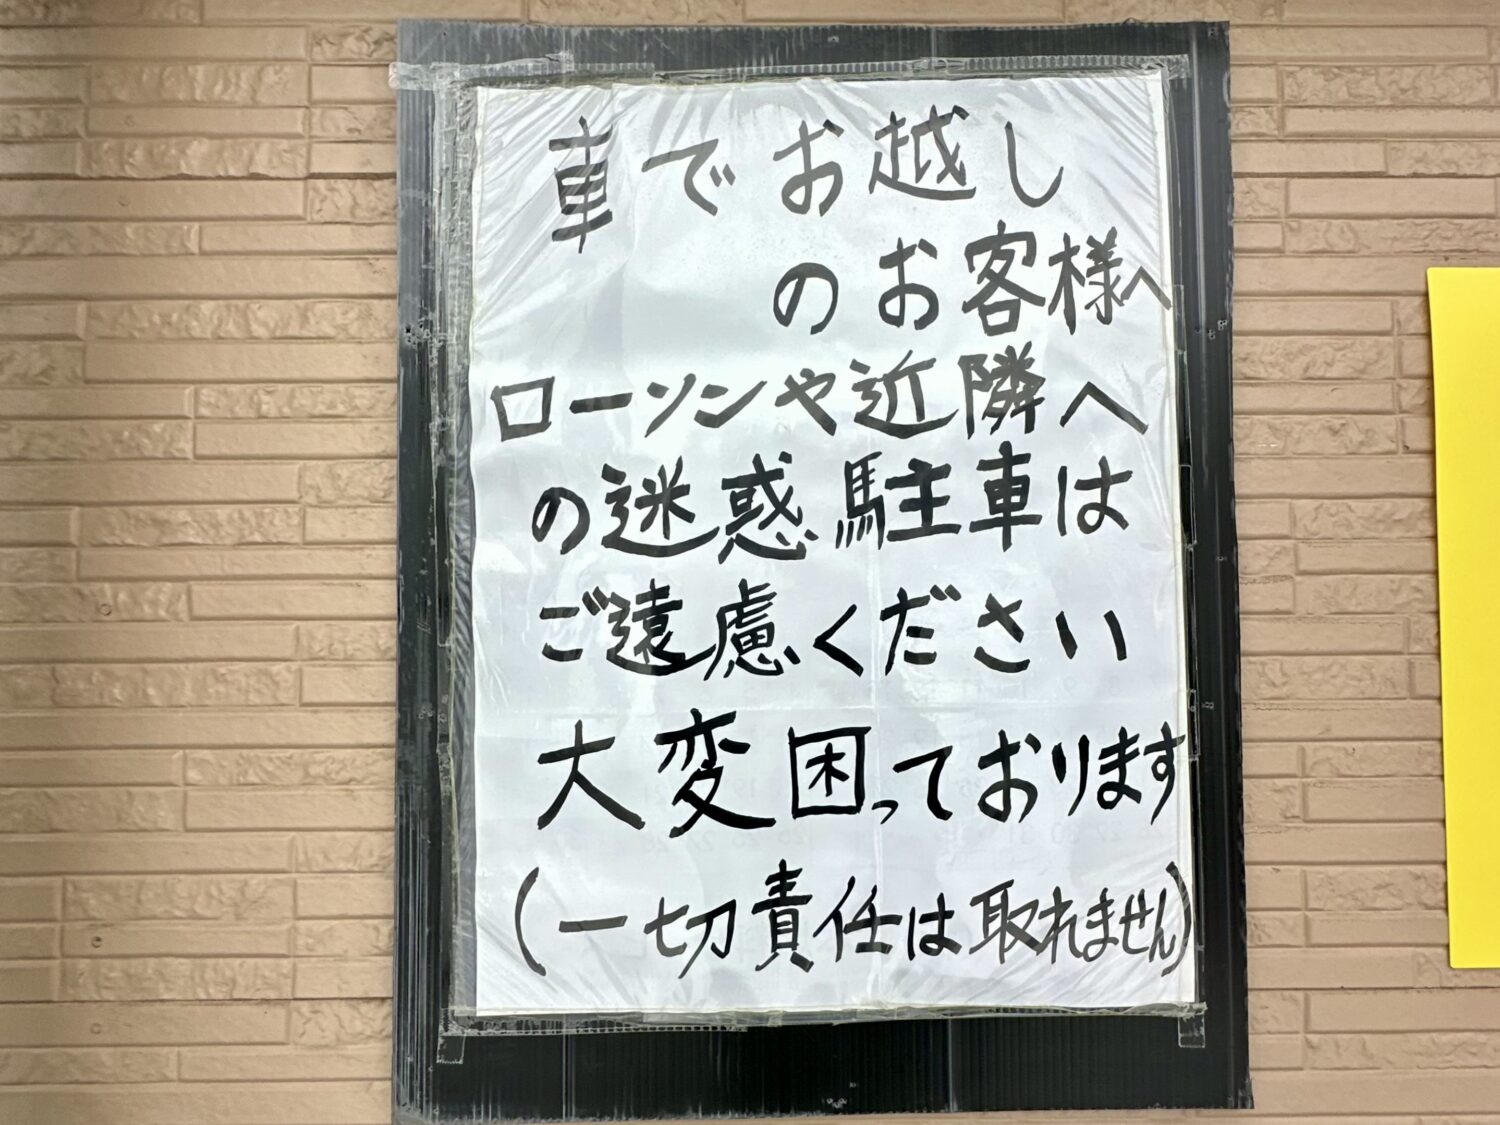 車でお越し
のお客様へ
ローソンや近隣へ
の迷惑駐車は
ご遠慮ください
大変困っております
(一切責任は取れません)